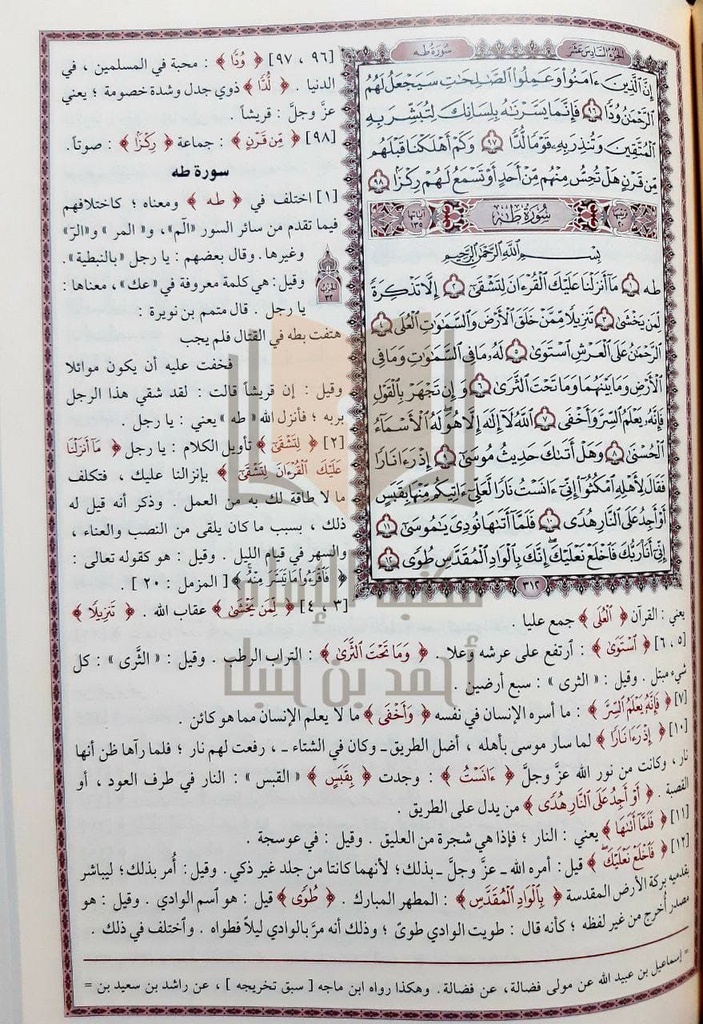 الجزء السادس عشر
سورة طه
إِنَّ ٱلَّذِينَ ءَامَنُوا۟ وَعَمِلُوا۟ ٱلصَّٰلِحَٰتِ سَيَجْعَلُ لَهُمُ
ٱلرَّحْمَٰنُ وُدًّا ٩٦ فَإِنَّمَا يَسَّرْنَٰهُ بِلِسَانِكَ لِتُبَشِّرَ بِهِ
ٱلْمُتَّقِينَ وَتُنذِرَ بِهِۦ قَوْمًا لُّدًّا ٩٧ وَكَمْ أَهْلَكْنَا قَبْلَهُم
مِّن قَرْنٍ هَلْ تُحِسُّ مِنْهُم مِّنْ أَحَدٍ أَوْ تَسْمَعُ لَهُمْ رِكْزًۢا ٩٨
ترتيبها ٢٠ سُورَةُ طه آياتها ١٣٥
بِسْمِ ٱللَّهِ ٱلرَّحْمَٰنِ ٱلرَّحِيمِ
طه ١ مَآ أَنزَلْنَا عَلَيْكَ ٱلْقُرْءَانَ لِتَشْقَىٰٓ ٢ إِلَّا تَذْكِرَةً
لِّمَن يَخْشَىٰ ٣ تَنزِيلًا مِّمَّنْ خَلَقَ ٱلْأَرْضَ وَٱلسَّمَٰوَٰتِ ٱلْعُلَى ٤
ٱلرَّحْمَٰنُ عَلَى ٱلْعَرْشِ ٱسْتَوَىٰ ٥ لَهُۥ مَا فِى ٱلسَّمَٰوَٰتِ وَمَا فِى
ٱلْأَرْضِ وَمَا بَيْنَهُمَا وَمَا تَحْتَ ٱلثَّرَىٰ ٦ وَإِن تَجْهَرْ بِٱلْقَوْلِ
فَإِنَّهُۥ يَعْلَمُ ٱلسِّرَّ وَأَخْفَى ٧ ٱللَّهُ لَآ إِلَٰهَ إِلَّا هُوَ لَهُ ٱلْأَسْمَآءُ
ٱلْحُسْنَىٰ ٨ وَهَلْ أَتَىٰكَ حَدِيثُ مُوسَىٰٓ ٩ إِذْ رَءَا نَارًا
فَقَالَ لِأَهْلِهِ ٱمْكُثُوٓا۟ إِنِّىٓ ءَانَسْتُ نَارًا لَّعَلِّىٓ ءَاتِيكُم مِّنْهَا بِقَبَسٍ
أَوْ أَجِدُ عَلَى ٱلنَّارِ هُدًى ١٠ فَلَمَّآ أَتَىٰهَا نُودِىَ يَٰمُوسَىٰٓ ١١
إِنِّىٓ أَنَا۠ رَبُّكَ فَٱخْلَعْ نَعْلَيْكَ إِنَّكَ بِٱلْوَادِ ٱلْمُقَدَّسِ طُوًى ١٢
٣١٢
[٩٦، ٩٧] ﴿ وُدًّا ﴾ : محبة في المسلمين ، في
الدنيا . ﴿ لُّدًّا ﴾ ذوي جدل وشدة خصومة ؛ يعني
عزَّ وجلَّ : قريشاً .
[٩٨] ﴿ مِّن قَرْنٍ ﴾ : جماعة ﴿ رِكْزًۢا ﴾ : صوتاً .
سورة طه
[١] اختلف في ﴿ طه ﴾ ومعناه ؛ كاختلافهم
فيما تقدم من سائر السور «الٓم»، و« المر » و«الرٓ»
وغيرها. وقال بعضهم : يا رجل «بالنبطية».
وقيل : هي كلمة معروفة في «عك»، معناها :
يا رجل . قال متمم بن نويرة :
هتفت بطه في القتال فلم يجب
فخفت عليه أن يكون موائلا
وقيل : إن قريشاً قالت : لقد شقي هذا الرجل
بربه ؛ فأنزل الله «طه» يعني : يا رجل .
[٢] ﴿ لِتَشْقَىٰٓ ﴾ تأويل الكلام : يا رجل ﴿ مَآ أَنزَلْنَا
عَلَيْكَ ٱلْقُرْءَانَ لِتَشْقَىٰٓ ﴾ بإنزالنا عليك ، فتكلف
ما لا طاقة لك به من العمل . وذكر أنه قيل له
ذلك ، بسبب ما كان يلقى من النصب والعناء ،
والسهر في قيام الليل . وقيل : هو كقوله تعالى :
﴿ فَٱقْرَءُوا۟ مَا تَيَسَّرَ مِنْهُ ﴾ [ المزمل : ٢٠ ] .
[٣ ، ٤] ﴿ لِّمَن يَخْشَىٰ ﴾ عقاب الله . ﴿ تَنزِيلًا ﴾
يعني : القرآن ﴿ ٱلْعُلَى ﴾ جمع عليا .
[٥ ، ٦] ﴿ ٱسْتَوَىٰ ﴾ : ارتفع على عرشه وعلا . ﴿ وَمَا تَحْتَ ٱلثَّرَىٰ ﴾ : التراب الرطب . وقيل : « الثَّرى » : كل
شيء مبتل . وقيل : « الثرى » : سبع أرضين .
[٧] ﴿ فَإِنَّهُۥ يَعْلَمُ ٱلسِّرَّ ﴾ : ما أسره الإنسان في نفسه ﴿ وَأَخْفَى ﴾ ما لا يعلم الإنسان مما هو كائن .
[١٠] ﴿ إِذْ رَءَا نَارًا ﴾ لما سار موسى بأهله ، أضل الطريق ـ وكان في الشتاء ـ ، رفعت لهم نار ؛ فلما رآها ظن أنها
نار ، وكانت من نور الله عزَّ وجلَّ ﴿ ءَانَسْتُ ﴾ : وجدت ﴿ بِقَبَسٍ ﴾ « القبس » : النار في طرف العود ، أو
القصبة . ﴿ أَوْ أَجِدُ عَلَى ٱلنَّارِ هُدًى ﴾ من يدل على الطريق .
[١١] ﴿ فَلَمَّآ أَتَىٰهَا ﴾ يعني : النار ؛ فإذا هي شجرة من العليق . وقيل : في عوسجة .
[١٢] ﴿ فَٱخْلَعْ نَعْلَيْكَ ﴾ قيل : أمره الله ـ عزَّ وجلَّ ـ بذلك ؛ لأنهما كانتا من جلد غير ذكي . وقيل : أُمر بذلك ؛ ليباشر
بقدميه بركة الأرض المقدسة ﴿ بِٱلْوَادِ ٱلْمُقَدَّسِ ﴾ : المطهر المبارك . ﴿ طُوًى ﴾ قيل : هو اسم الوادي . وقيل : هو
مصدر أُخرج من غير لفظه ؛ كأنه قال : طويت الوادي طوىً ؛ وذلك أنه مرَّ بالوادي ليلاً فطواه . واختلف في ذلك .
= إسماعيل بن عبيد الله عن مولى فضالة، عن فضالة. وهكذا رواه ابن ماجه [ سبق تخريجه ] ، عن راشد بن سعيد بن =
مكتبة الإمام
أحمد بن حنبل